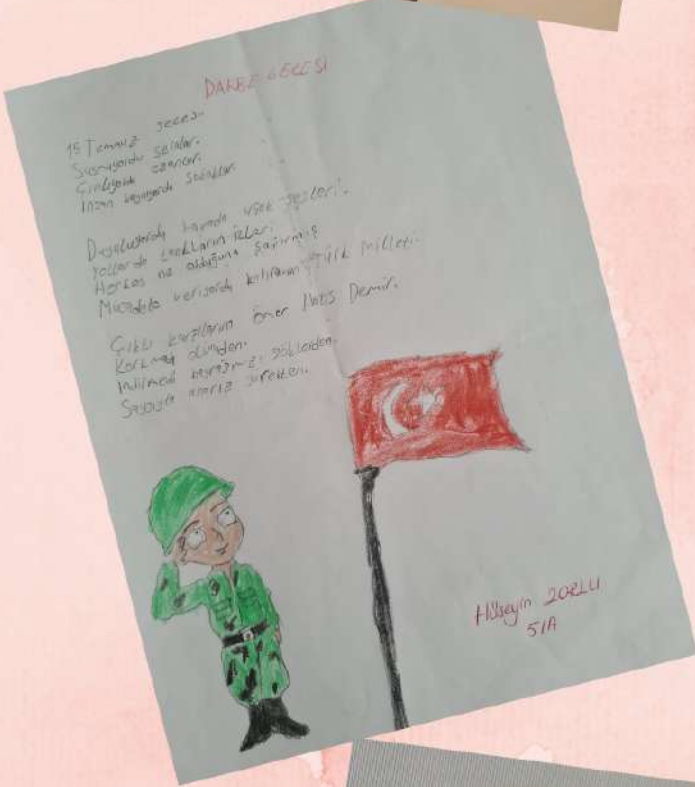 DARBE GECESİ
15 Temmuz gecesi
Susmuyordu selalar.
Çınlıyordu ezanlar.
İnsan kaynıyordu sokaklar.
Duyuluyordu havada uçak sesleri.
Yollarda tankların izleri
Herkes ne olduğunu şaşırmış
Mücadele veriyordu kahraman Türk Milleti.
Çıktı karşılarına Ömer Halis Demir.
Korkmadı ölümden.
İndirmedi bayrağımızı göklerden.
Saygıyla anarız yürekten.
Hüseyin ZORLU
5/A